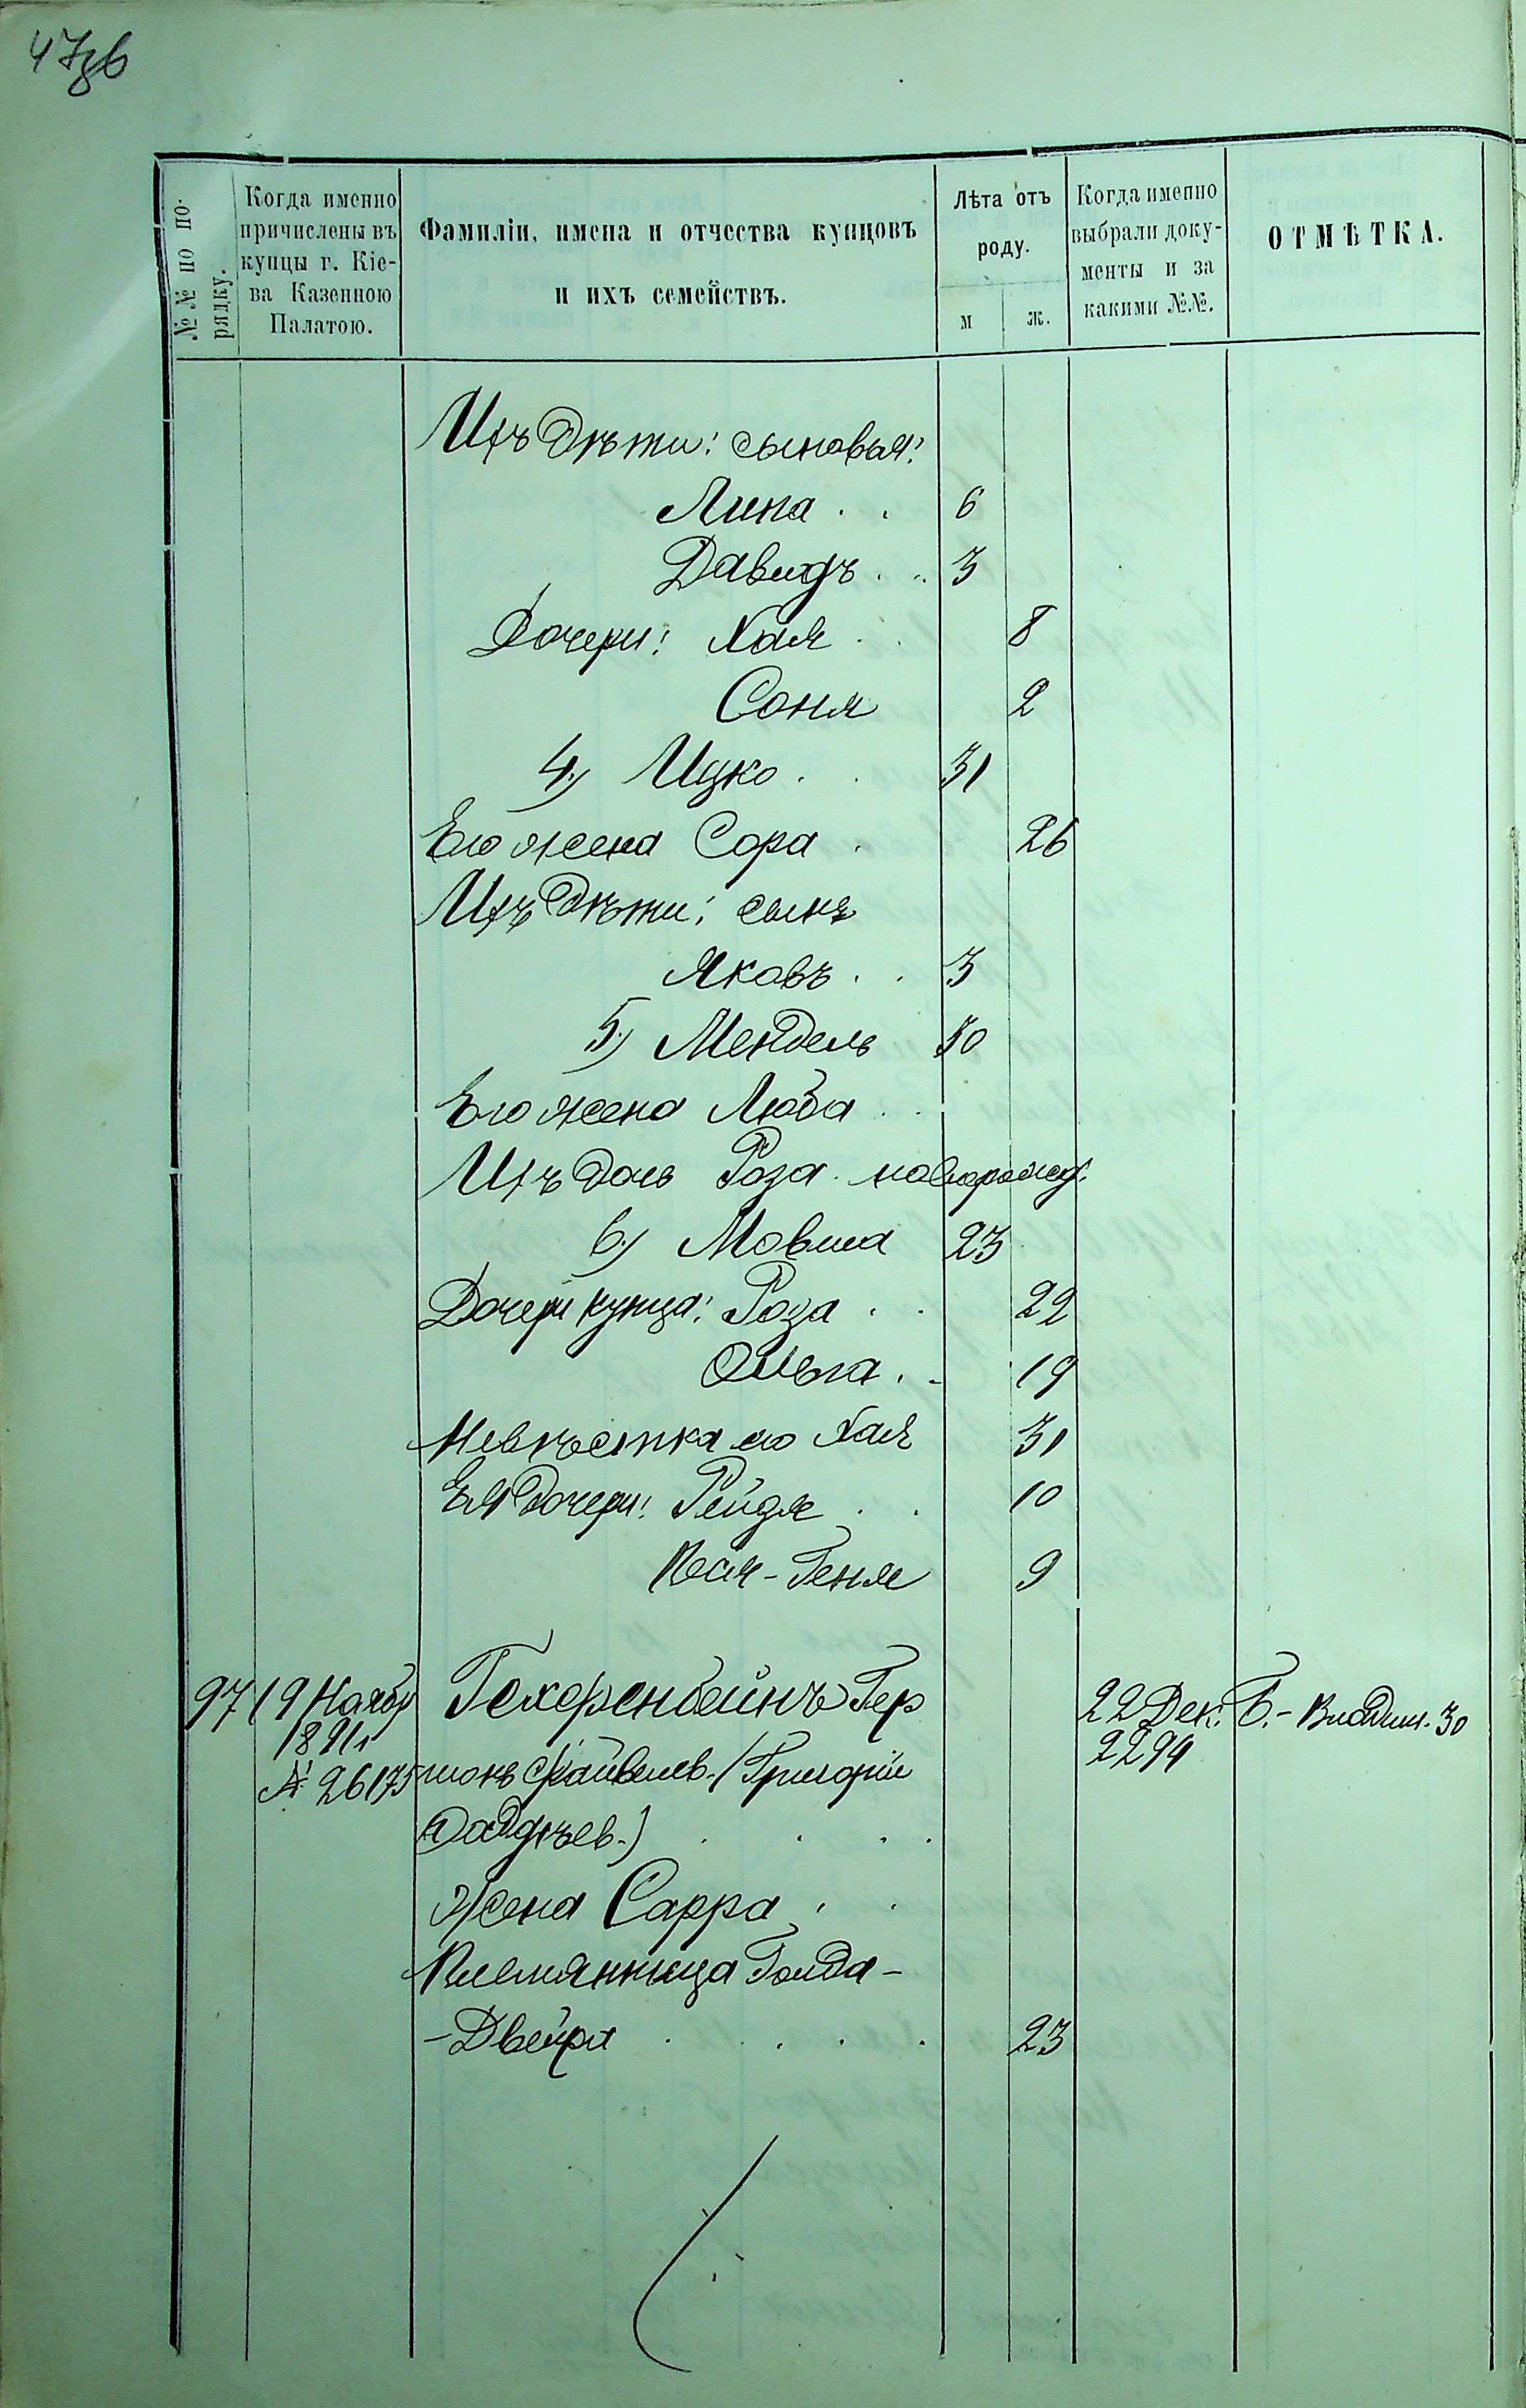 47зв
№№ по по-
рядку.
Когда именно
причислены въ
купцы г. Кіе-
ва Казенною
Палатою.
Фамиліи, имена и отчества купцовъ
и ихъ семействъ.
Лѣта отъ
роду.
м ж.
Когда именно
выбрали доку-
менты и за
какими №№.
ОТМѢТКА.
Ихъ дѣти: сыновья:
Липа . . 6
Давидъ . . 3
Дочери: Хая . . 8
Соня 2
4) Ицко . . 31
Его жена Сора . 26
Ихъ дѣти: сынъ
Яковъ . . 3
5) Мендель 30
Его жена Люба . .
Ихъ дочь Роза новорожд.
6) Мовша 23
Дочери купца: Роза . . 22
Ольга . . 19
Невѣстка его Хая 31
Ея дочери: Рейзя . . 10
Песя-Геня 9
97 19 Ноябр Гехеренбейнъ Гер 22 Дек. Б.-Владим. 30
1891г 2294
№ 26175 шонъ Файвелев. (Григорій
Фаддѣев.) . . . .
Жена Сарра . .
Племянница Голда-
-Двейра . . . . 23